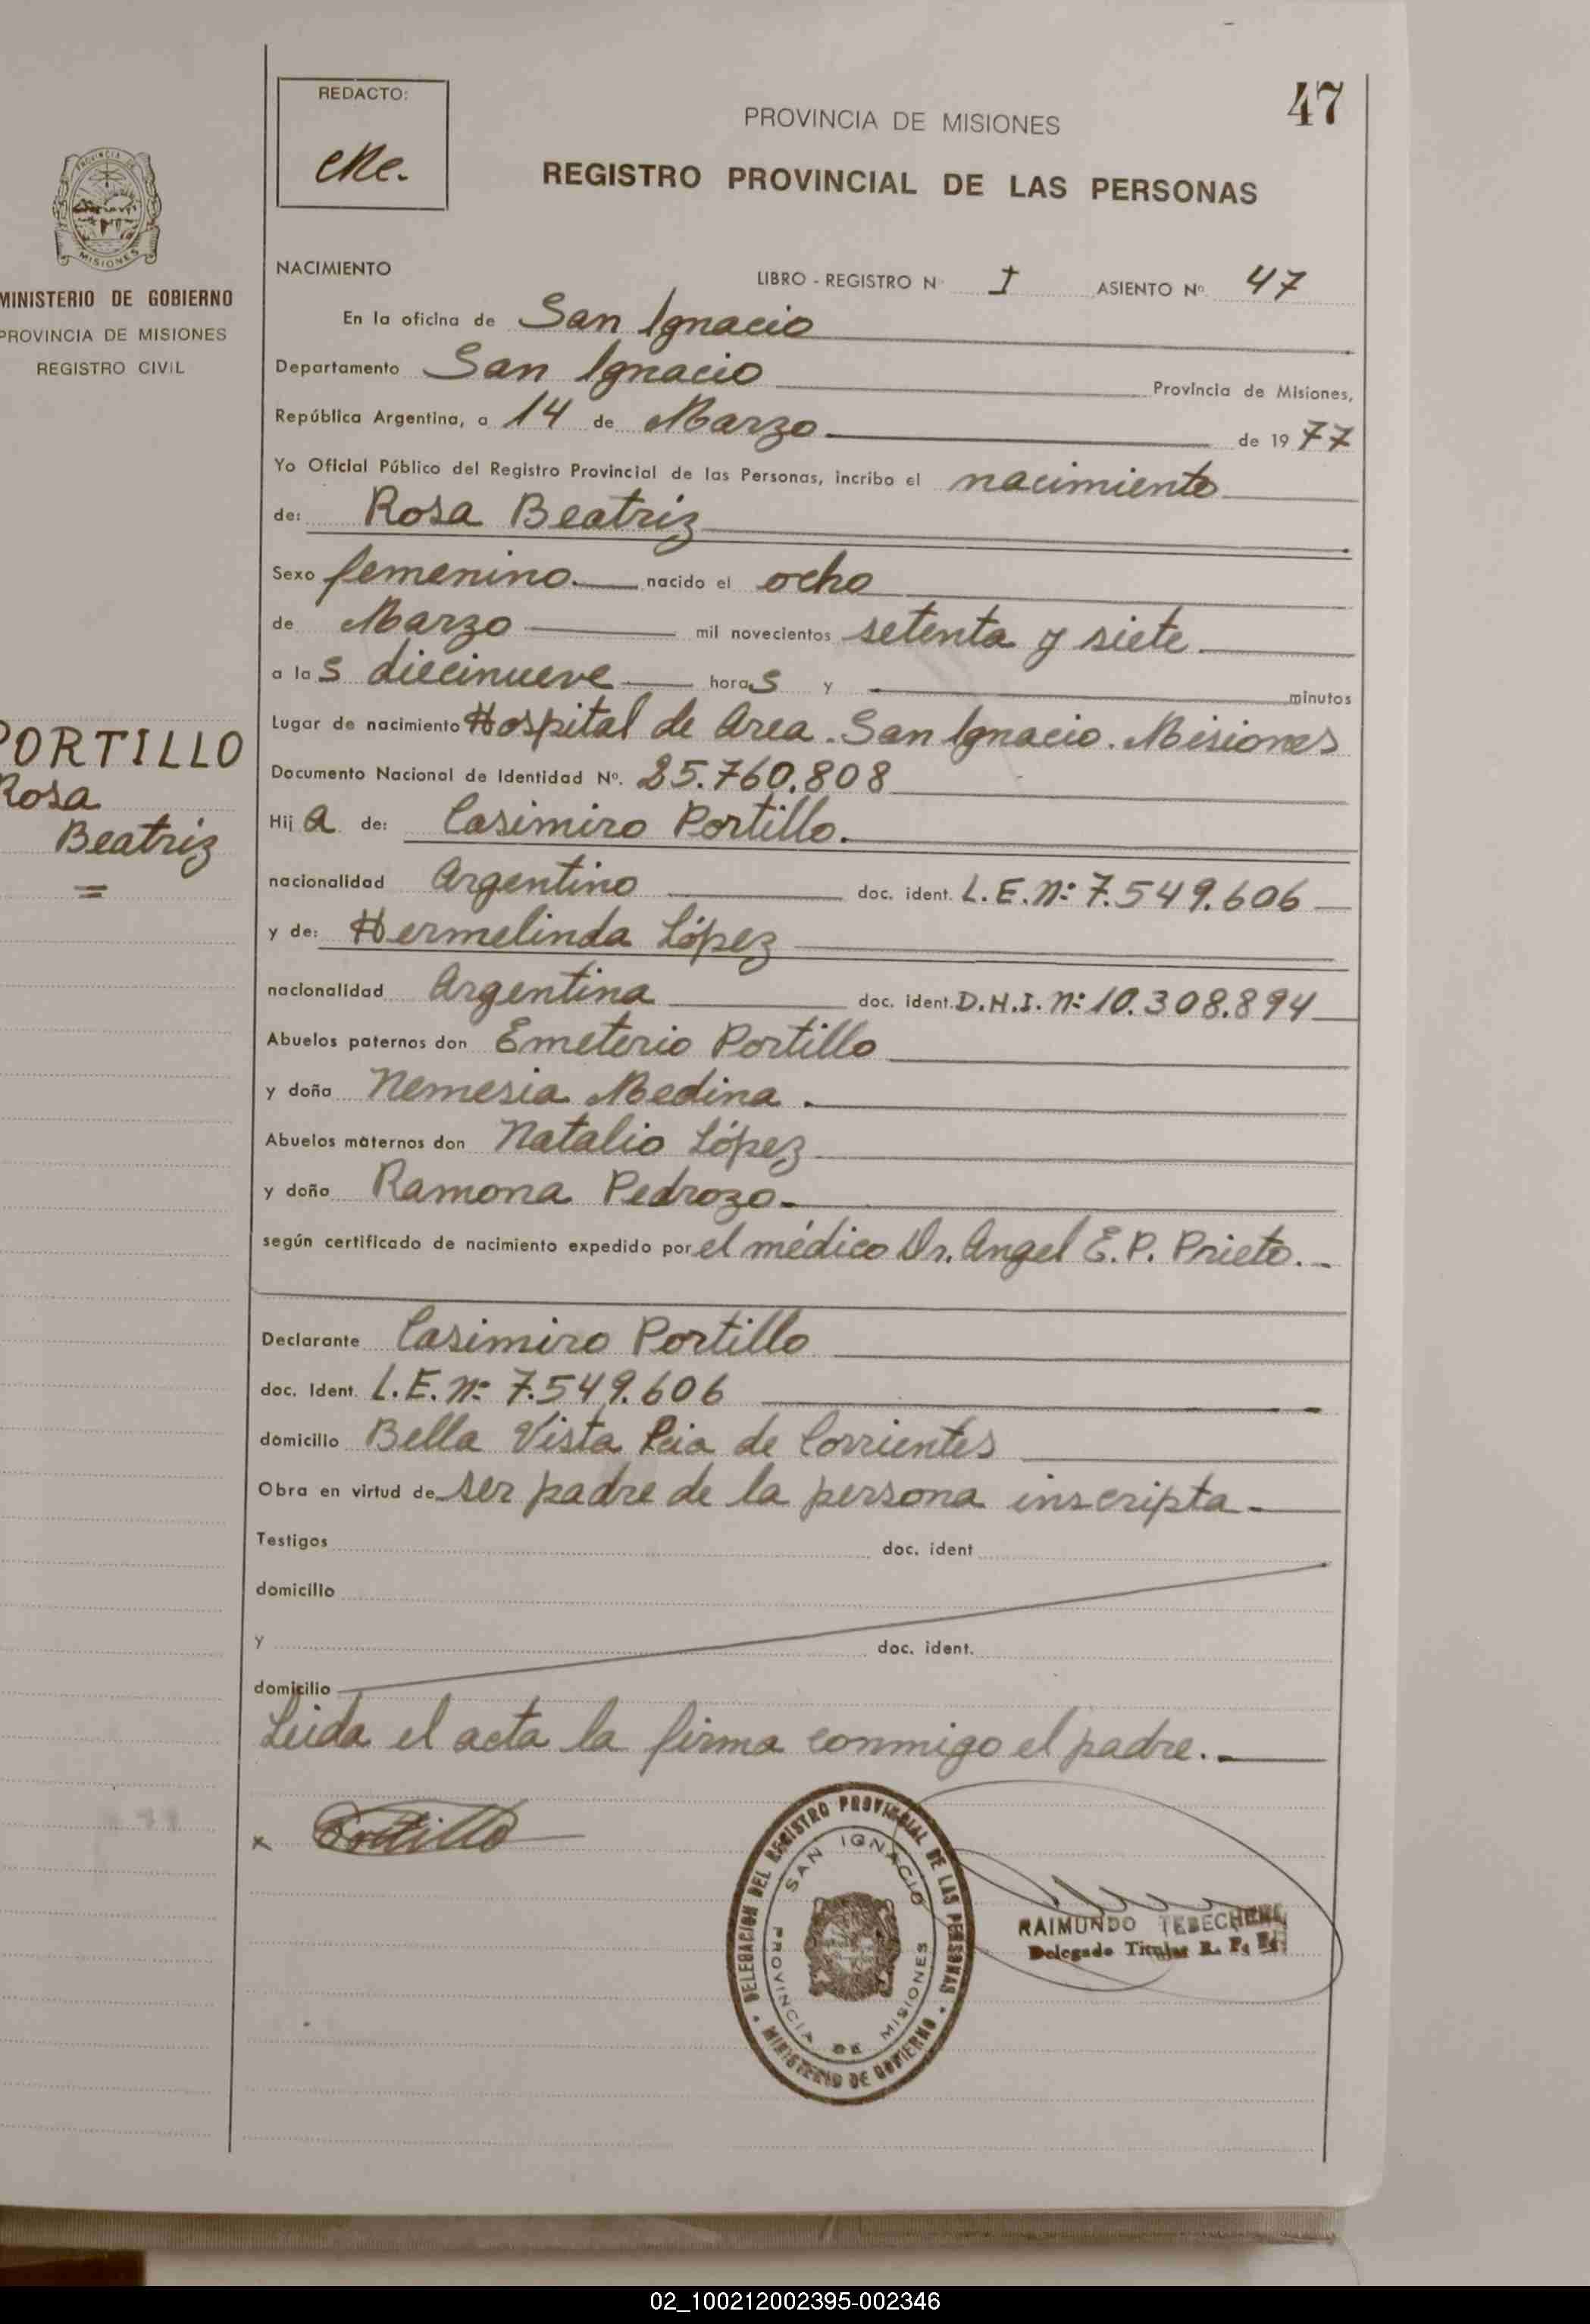 47
REDACTO:
PROVINCIA DE MISIONES
REGISTRO PROVINCIAL DE LAS PERSONAS
PROVINCIA DE
MISIONES
MINISTERIO DE GOBIERNO
PROVINCIA DE MISIONES
REGISTRO CIVIL
PORTILLO
Rosa
Beatriz
=
NACIMIENTO LIBRO - REGISTRO Nº I ASIENTO Nº 47
En la oficina de San Ignacio
Departamento San Ignacio Provincia de Misiones,
República Argentina, a 14 de Marzo de 1977
Yo Oficial Público del Registro Provincial de las Personas, incribo el nacimiento
de: Rosa Beatriz
Sexo femenino. nacido el ocho
de Marzo mil novecientos setenta y siete
a las diecinueve horas y minutos
Lugar de nacimiento Hospital de Area. San Ignacio. Misiones
Documento Nacional de Identidad Nº. 25.760.808
Hija de: Casimiro Portillo.
nacionalidad Argentino doc. ident. L.E. nº 7.549.606
y de: Hermelinda López
nacionalidad Argentina doc. ident. D.N.I. nº 10.308.894
Abuelos paternos don Emeterio Portillo
y doña Nemesia Medina.
Abuelos maternos don Natalio López
y doña Ramona Pedrozo.
según certificado de nacimiento expedido por el médico Dr. Angel E.P. Prieto.
Declarante Casimiro Portillo
doc. Ident. L.E. nº 7.549.606
domicilio Bella Vista Pcia de Corrientes
Obra en virtud de ser padre de la persona inscripta.
Testigos doc. ident
domicilio
y doc. ident.
domicilio
Leida el acta la firma conmigo el padre.
x Portillo
DELEGACION DEL REGISTRO PROVINCIAL DE LAS PERSONAS
SAN IGNACIO
PROVINCIA DE MISIONES
MINISTERIO DE GOBIERNO
RAIMUNDO
Delegado Titular R. P.
02_100212002395-002346